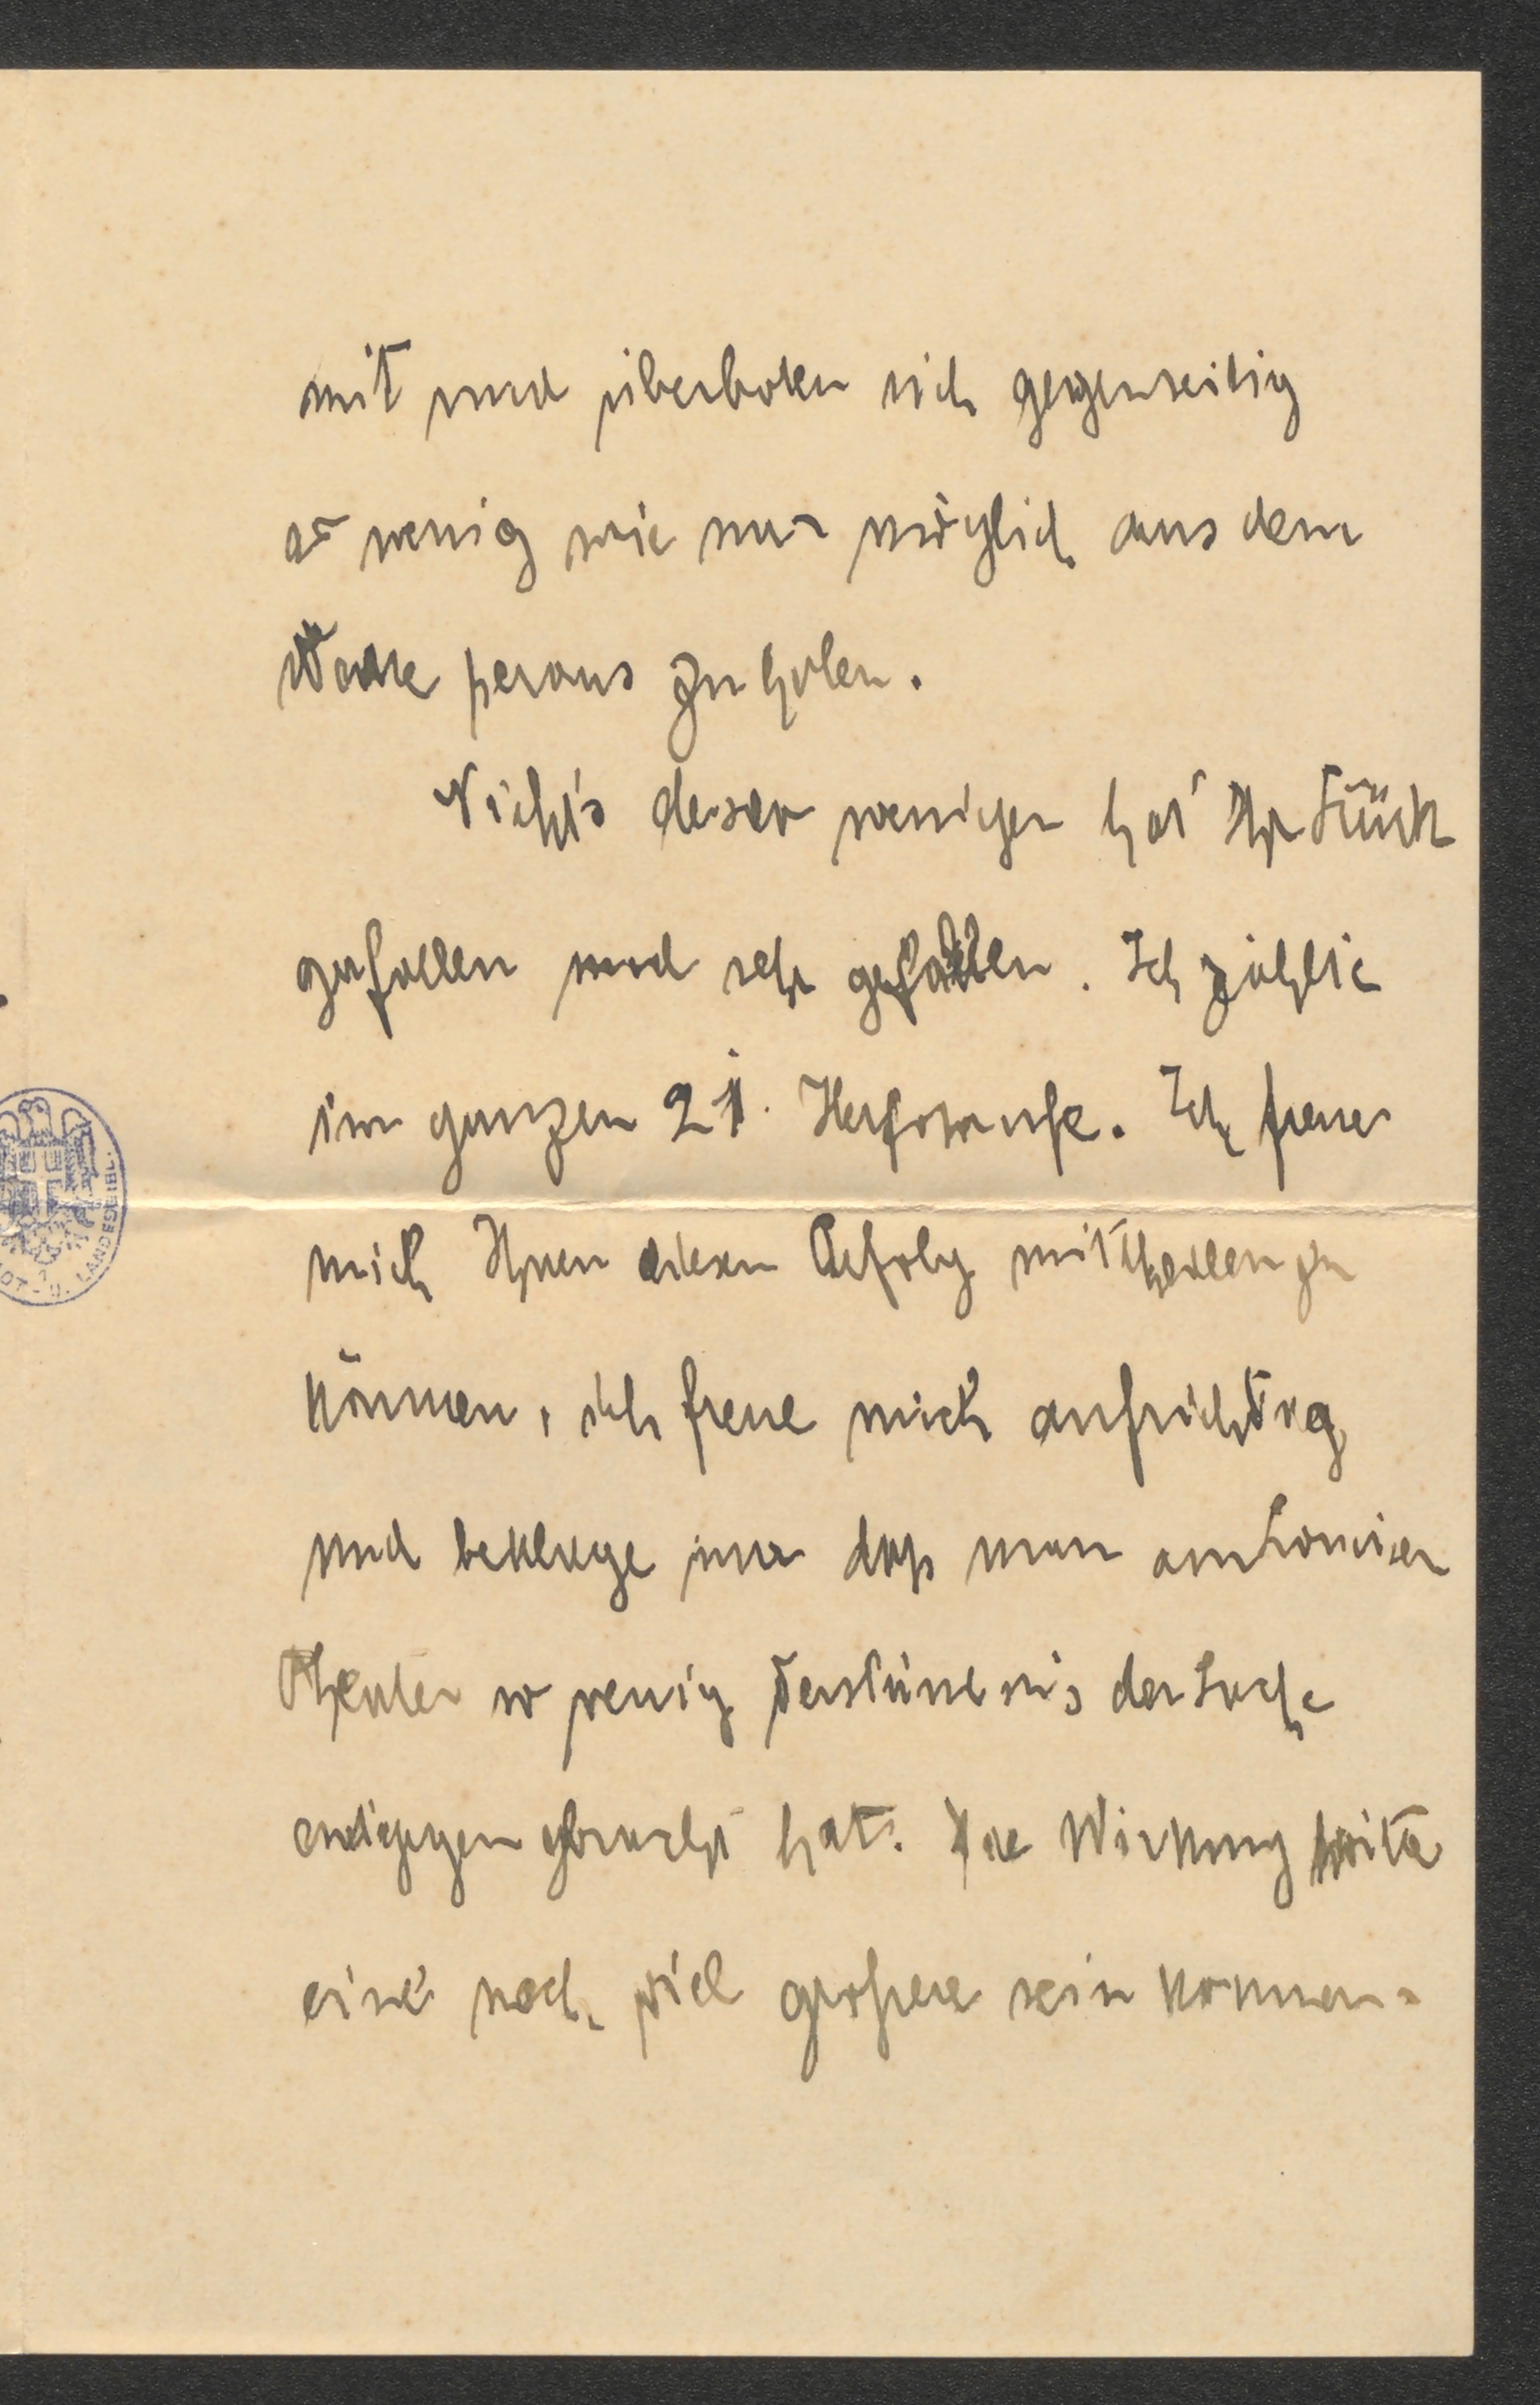 mit und überboten sich gegenseitig
so wenig wie nur möglich aus dem
Werke heraus zu holen.
Nicht's desto weniger hat Ihr Stück
gefallen und sehr gefallen. Ich zählte
im ganzen 21. Herforrufe. Ich freue
mich Ihnen diesen Erfolg mittheilen zu
können, ich freue mich aufrichtig
und beklage nur daß man am
Theater so wenig Verständnis der Sache
entgegengebracht hat. Die Wirkung hätte
eine noch viel größere sein können.
LANDESBIBL.